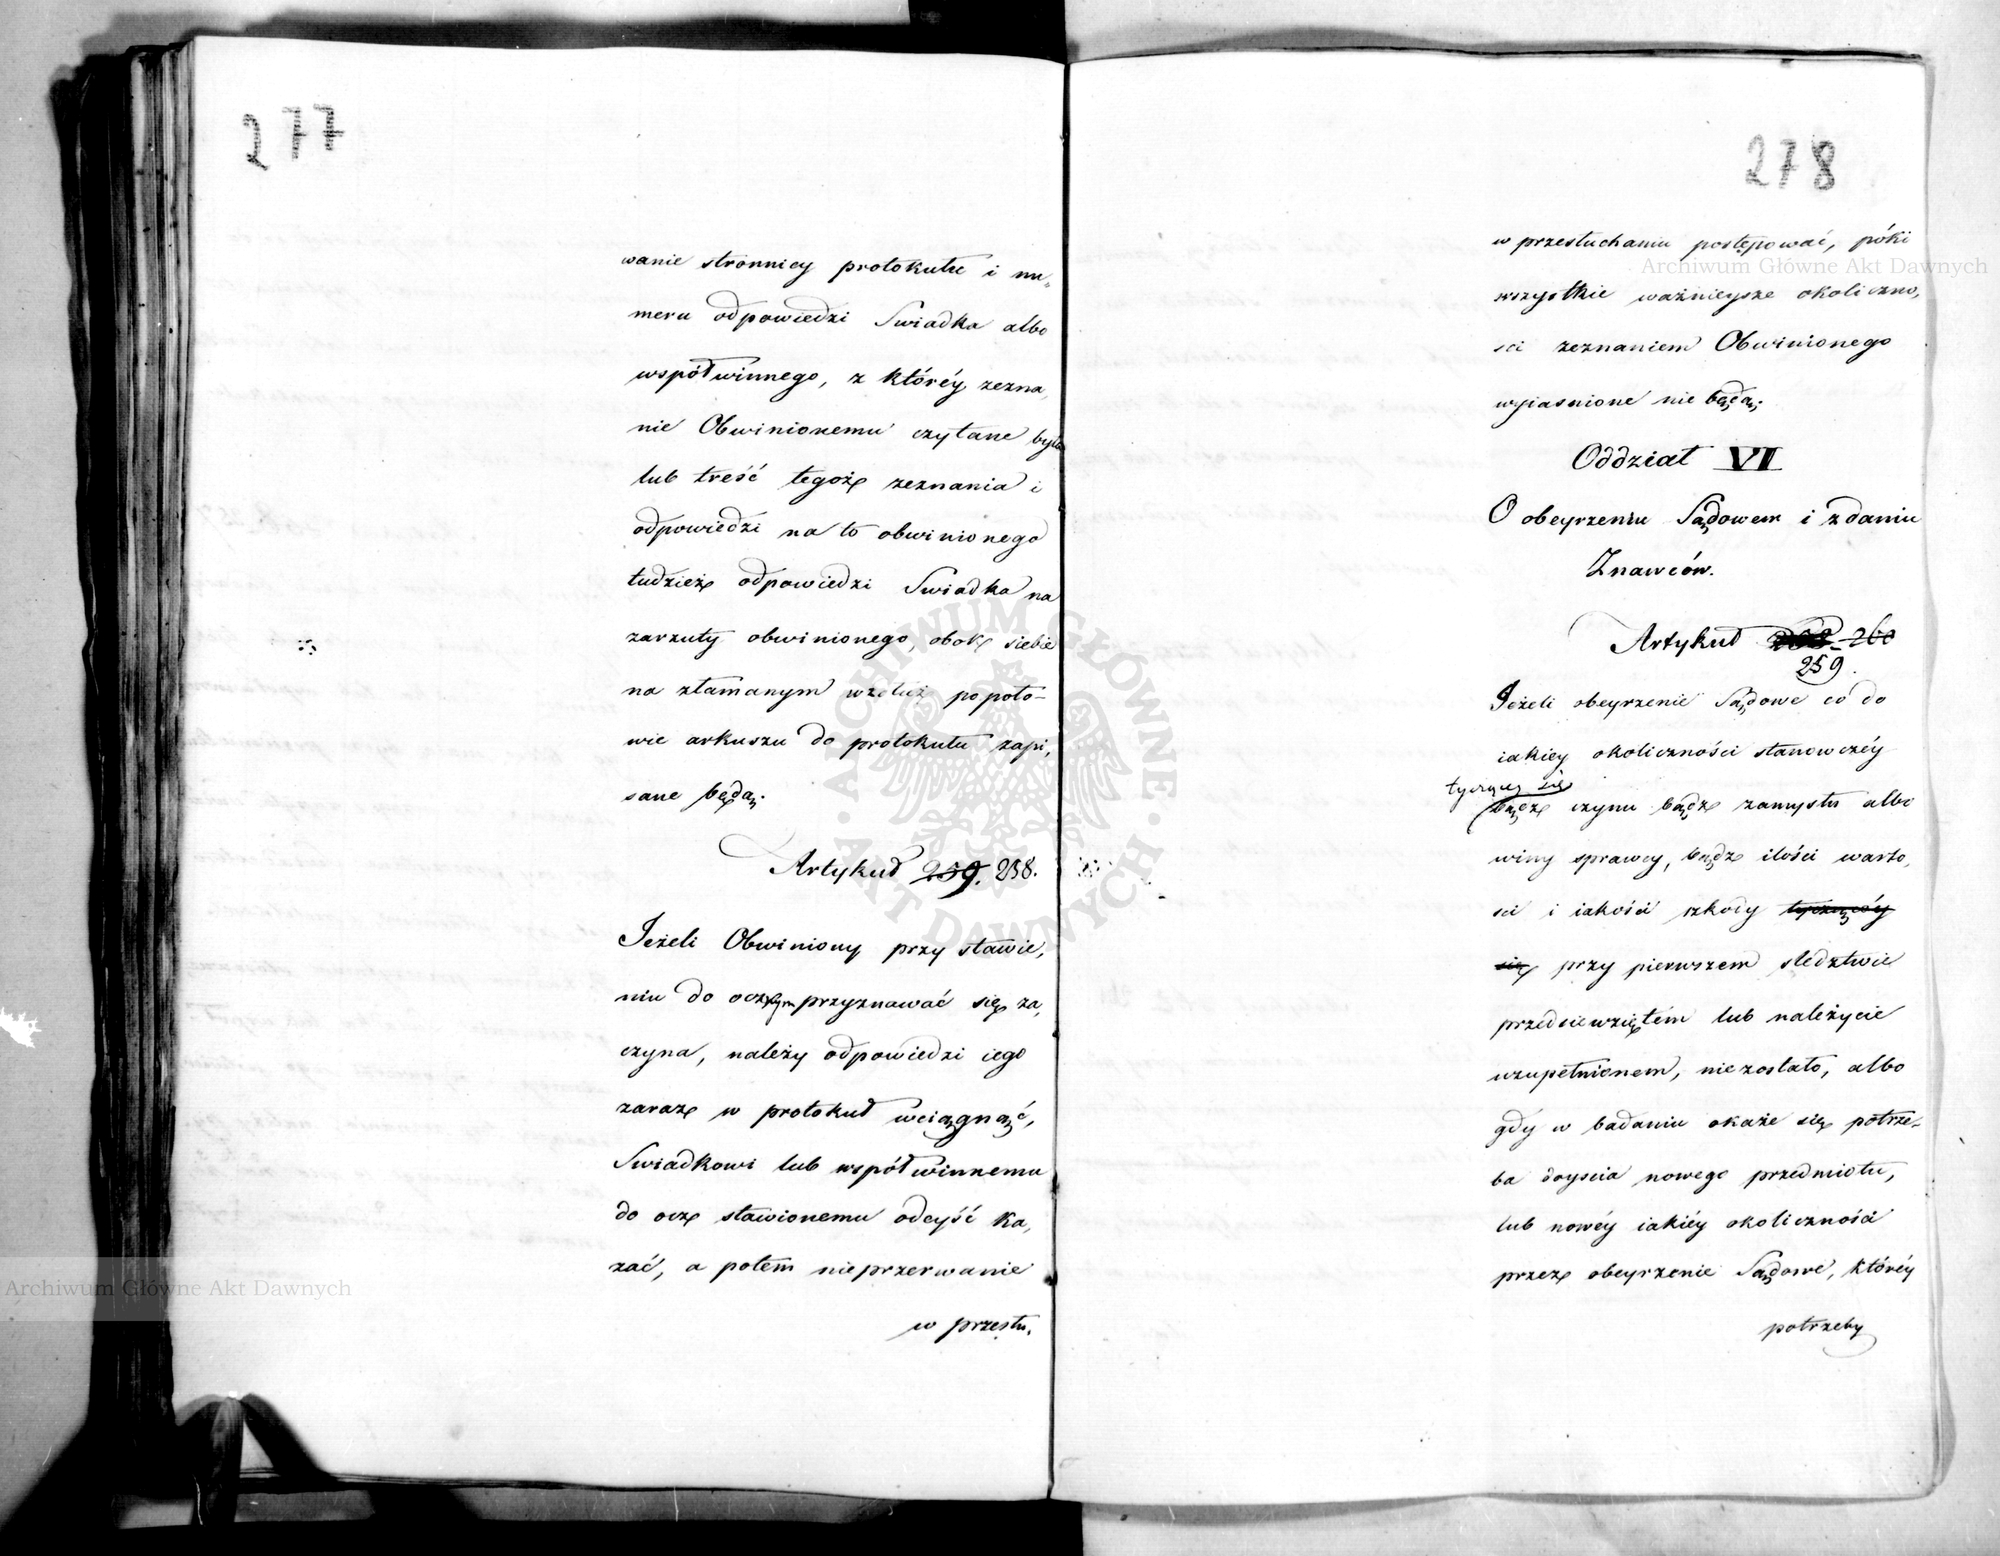 277
wanie stronnicy protokułu i nu„
meru odpowiedzi Swiadka albo
współwinnego, z któréy zezna„
nie Obwinionemu czytane było
lub treść tegoż zeznania i
odpowiedzi na to obwinionego
tudzież odpowiedzi Swiadka na
zarzuty obwinionego, obok siebie
na złamanym wzdłuż po poło-
wie arkuszu do protokułu zapi„
sane będą.
Artykuł 259. 258.
Jeżeli Obwiniony przy stawie„
niu do przyznawać się za„
czyna, należy odpowiedzi iego
zaraz w protokuł wciągnąć,
Swiadkowi lub współwinnemu
do ocz stawionemu odeyść ka„
zać, a potém nieprzerwanie
w przesłu„
278
w przesłuchaniu postępować, póki
wszystkie ważnieysze okoliczno„
sci zeznaniem Obwinionego
wyiasnione nie będą.
Oddział VI
O obeyrzeniu Sądowem i zdaniu
Znawców.
Artykuł 260
259.
Jeżeli obeyrzenie Sądowe co do
iakiey okoliczności stanowczéy
tyczącey się
bądź czynu bądź zamysłu albo
winy sprawcy, bądź ilości warto„
sci i iakości szkody tyczącéy
się przy pierwszem sledztwie
przedsiewziętém lub należycie
uzupełnionem, niezostało, albo
gdy w badaniu okaże się potrze-
ba doyscia nowego przedmiotu,
lub nowéy iakiéy okoliczności
przez obeyrzenie Sądowe, któréy
potrzeby
Archiwum Główne Akt Dawnych
Archiwum Główne Akt Dawnych
ARCHIWUM GŁÓWNE AKT DAWNYCH